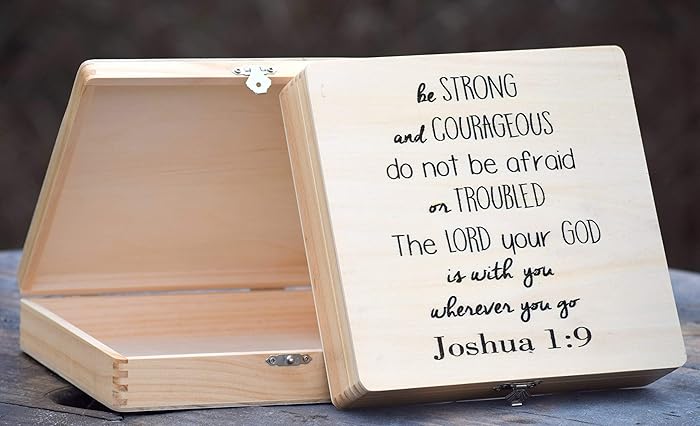 be STRONG
and COURAGEOUS
do not be afraid
or TROUBLED
The LORD your GOD
is with you
wherever you go
Joshua 1:9